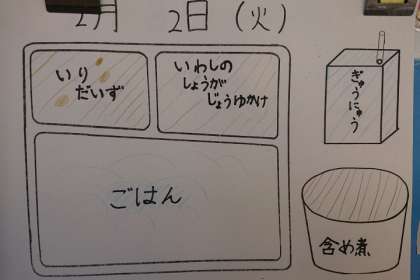 2月 2日（火）
いり
だいず
いわしの
しょうが
じょうゆかけ
ぎゅうにゅう
ごはん
含め煮